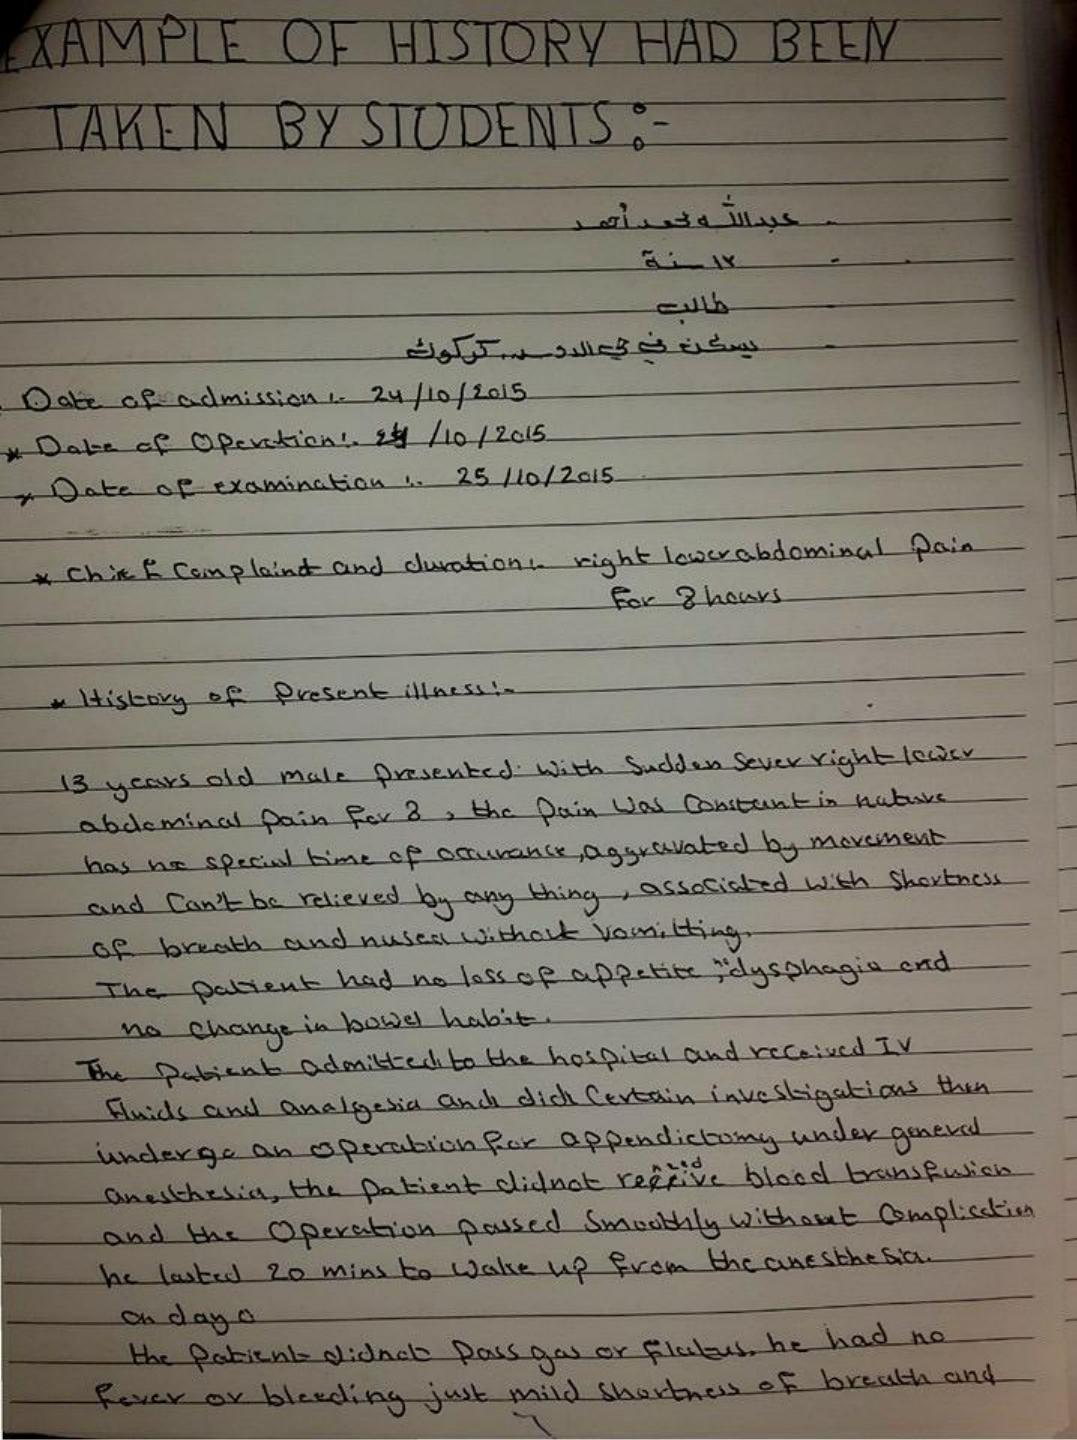 EXAMPLE OF HISTORY HAD BEEN
TAKEN BY STUDENTS:-
- عبدالله محمد أحمد
- ١٢ سنة
- طالب
- يسكن في حي كركوك
Date of admission:- 24/10/2015
* Date of Operation:- 24/10/2015
* Date of examination:- 25/10/2015
* Chief Complaint and duration:- right lower abdominal Pain
For 8 hours
* History of Present illness:-
13 years old male Presented with Sudden Sever right lower
abdominal Pain for 8, the Pain was Constant in nature
has no special time of occurance, aggravated by movement
and Can't be relieved by any thing, associated with Shortness
of breath and nusea without vomitting.
The Patient had no loss of appetite, dysphagia and
no change in bowel habit.
The Patient admitted to the hospital and received IV
fluids and analgesia and did Certain investigations then
undergo an operation for appendictomy under general
anesthesia, the Patient didnot blood transfusion
and the Operation passed Smoothly without Complication
he lasted 20 mins to wake up from the anesthesia.
on day 0
the Patient didnot Pass gas or flatus, he had no
fever or bleeding just mild Shortness of breath and